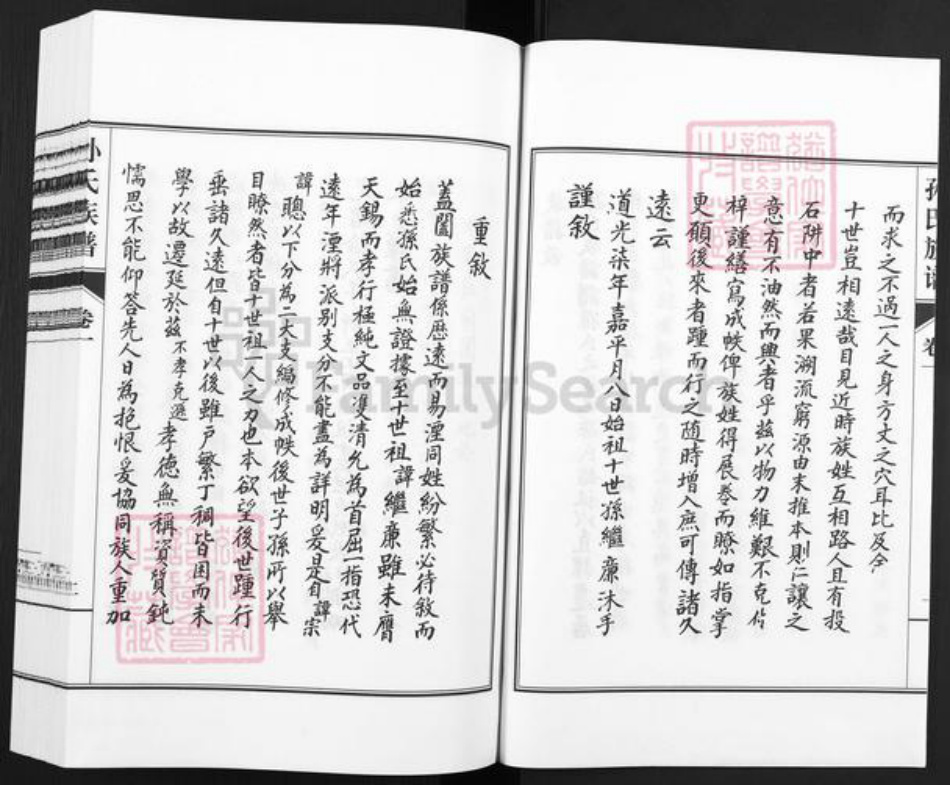 孫氏族譜
卷
而求之不過一人之身方丈之穴耳比及今
十世豈相遠哉目見近時族姓互相路人且有投
石阱中者若果溯流窮源由末推本則仁讓之
意有不油然而興者乎茲以物力維艱不克付
梓謹繕寫成帙俾族姓得展卷而瞭如指掌
更願後來者踵而行之隨時增入庶可傳諸久
遠云
道光柒年嘉平月八日始祖十世孫繼廉沐手
謹敘
重敘
蓋闔族譜係歷遠而易湮同姓紛繁必待敘而
始悉孫氏始無證據至十世祖諱繼廉雖未膺
天錫而孝行極純文品雙清允為首屈一指恐代
遠年湮將派別支分不能盡為詳明爰是自諱宗
諱聰以下分為二大支編修成帙後世子孫所以舉
目瞭然者皆十世祖一人之力也本欲望後世踵行
垂諸久遠但自十世以後雖戶繁丁稠皆困而未
學以故遷延於茲不孝克遜孝德無稱資質鈍
懦思不能仰答先人日為抱恨爰協同族人重加
孫氏族譜
卷一
FamilySearch